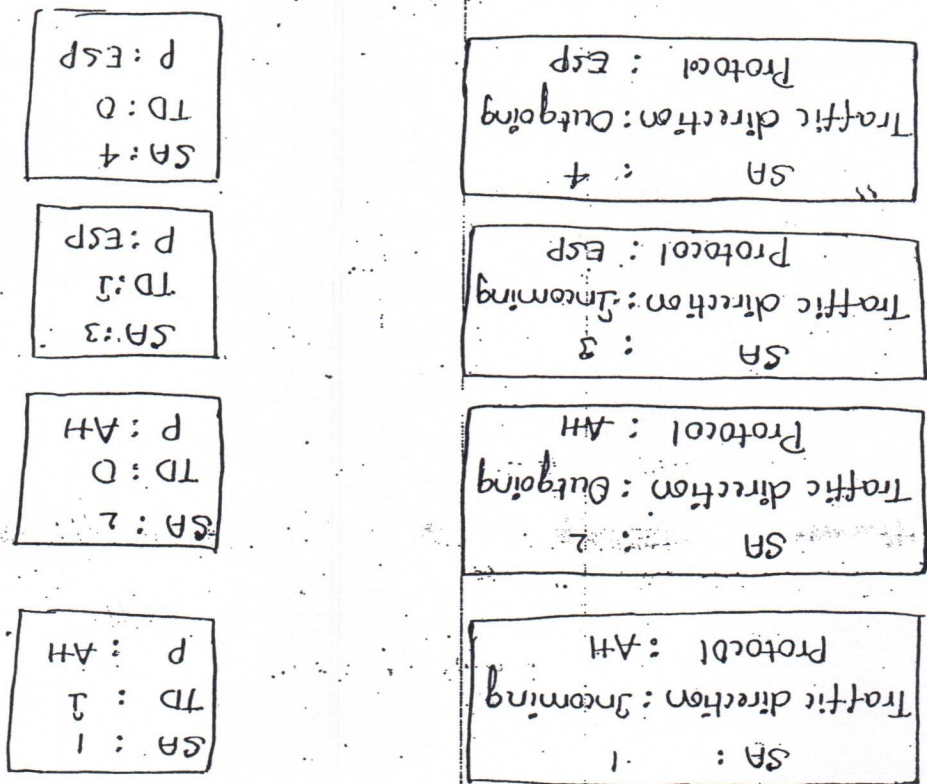 SA : 1
Traffic direction : Incoming
Protocol : AH
SA : 2
Traffic direction : Outgoing
Protocol : AH
SA : 3
Traffic direction : Incoming
Protocol : ESP
SA : 4
Traffic direction : Outgoing
Protocol : ESP
SA : 1
TD : I
P : AH
SA : 2
TD : O
P : AH
SA : 3
TD : I
P : ESP
SA : 4
TD : O
P : ESP